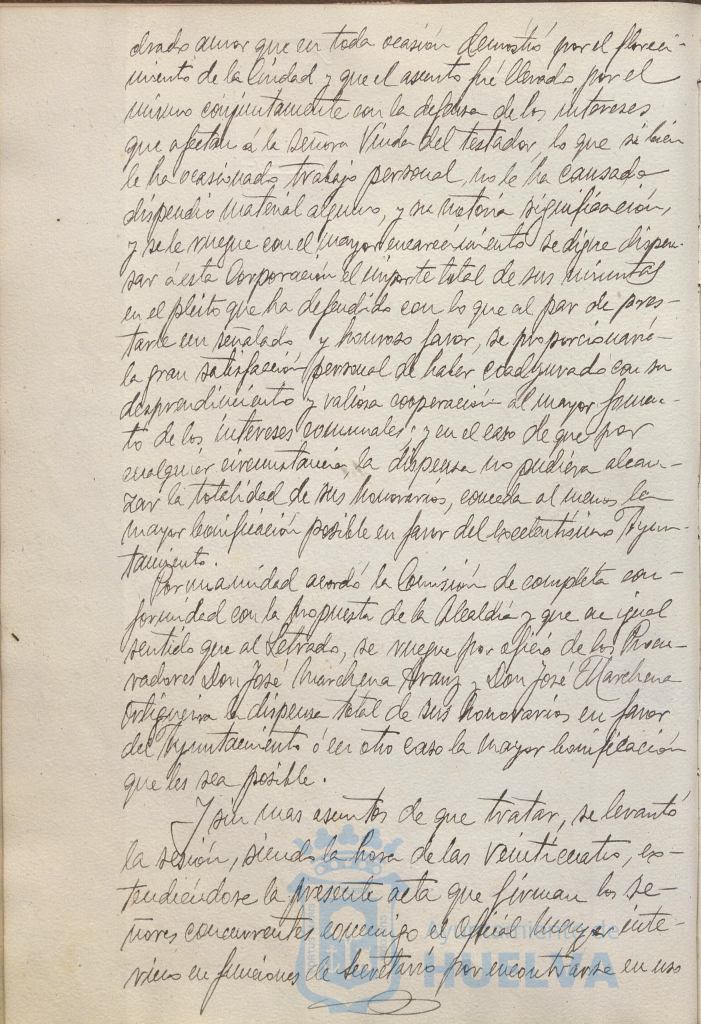 drado amor que en toda ocasión demostró por el floreci-
miento de la Ciudad y que el asunto fué llevado por el
mismo conjuntamente con la defensa de los intereses
que afectan á la señora Viuda del testador, lo que si bien
le ha ocasionado trabajo personal, no le ha causado
dispendio material alguno, y su notoria significación,
y se le ruegue con el mayor encarecimiento se digne dispen-
sar á esta Corporación el importe total de sus minutas
en el pleito que ha defendido con lo que al par de pres-
tarle un señalado y honroso favor, se proporcionaría
la gran satisfacción personal de haber coadyuvado con su
desprendimiento y valiosa cooperación al mayor fomen-
to de los intereses comunales; y en el caso de que por
cualquier circunstancia, la dispensa no pudiera alcan-
zar la totalidad de sus honorarios, conceda al menos la
mayor bonificación posible en favor del Excelentísimo Ayun-
tamiento.
Por unanimidad acordó la Comisión de completa con-
formidad con la propuesta de la Alcaldía y que en igual
sentido que al Letrado, se ruegue por oficio de los Procu-
radores Don José Marchena Aranz y Don José Marchena
Ortiguerra la dispensa total de sus honorarios en favor
del Ayuntamiento ó en otro caso la mayor bonificación
que les sea posible.
Y sin mas asuntos de que tratar, se levantó
la sesión, siendo la hora de las veinticuatro, ex-
tendiéndose la presente acta que firman los se-
ñores concurrentes conmigo el Oficial Mayor inte-
rino en funciones de Secretario por encontrarse en uso
Ayuntamiento de
HUELVA